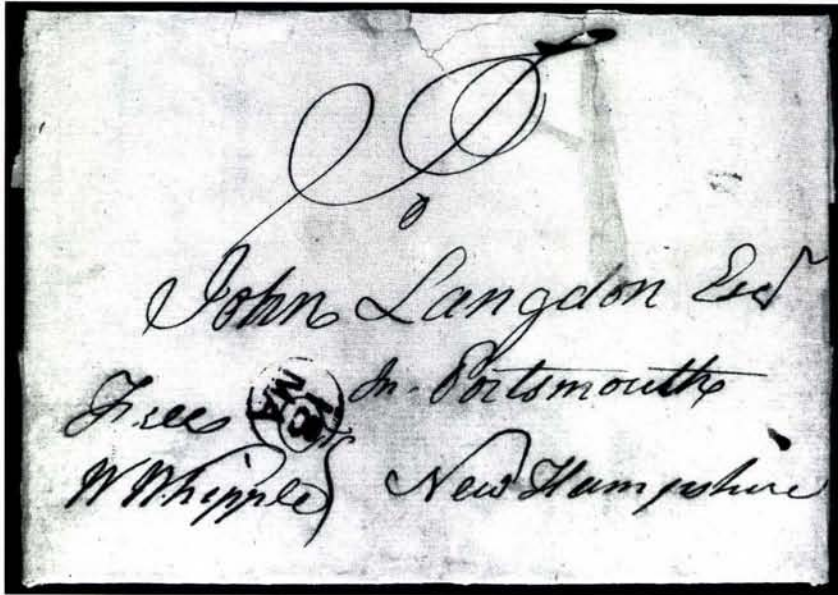 To
John Langdon Esqr
In Portsmouth
Free
W Whipple
New Hampshire